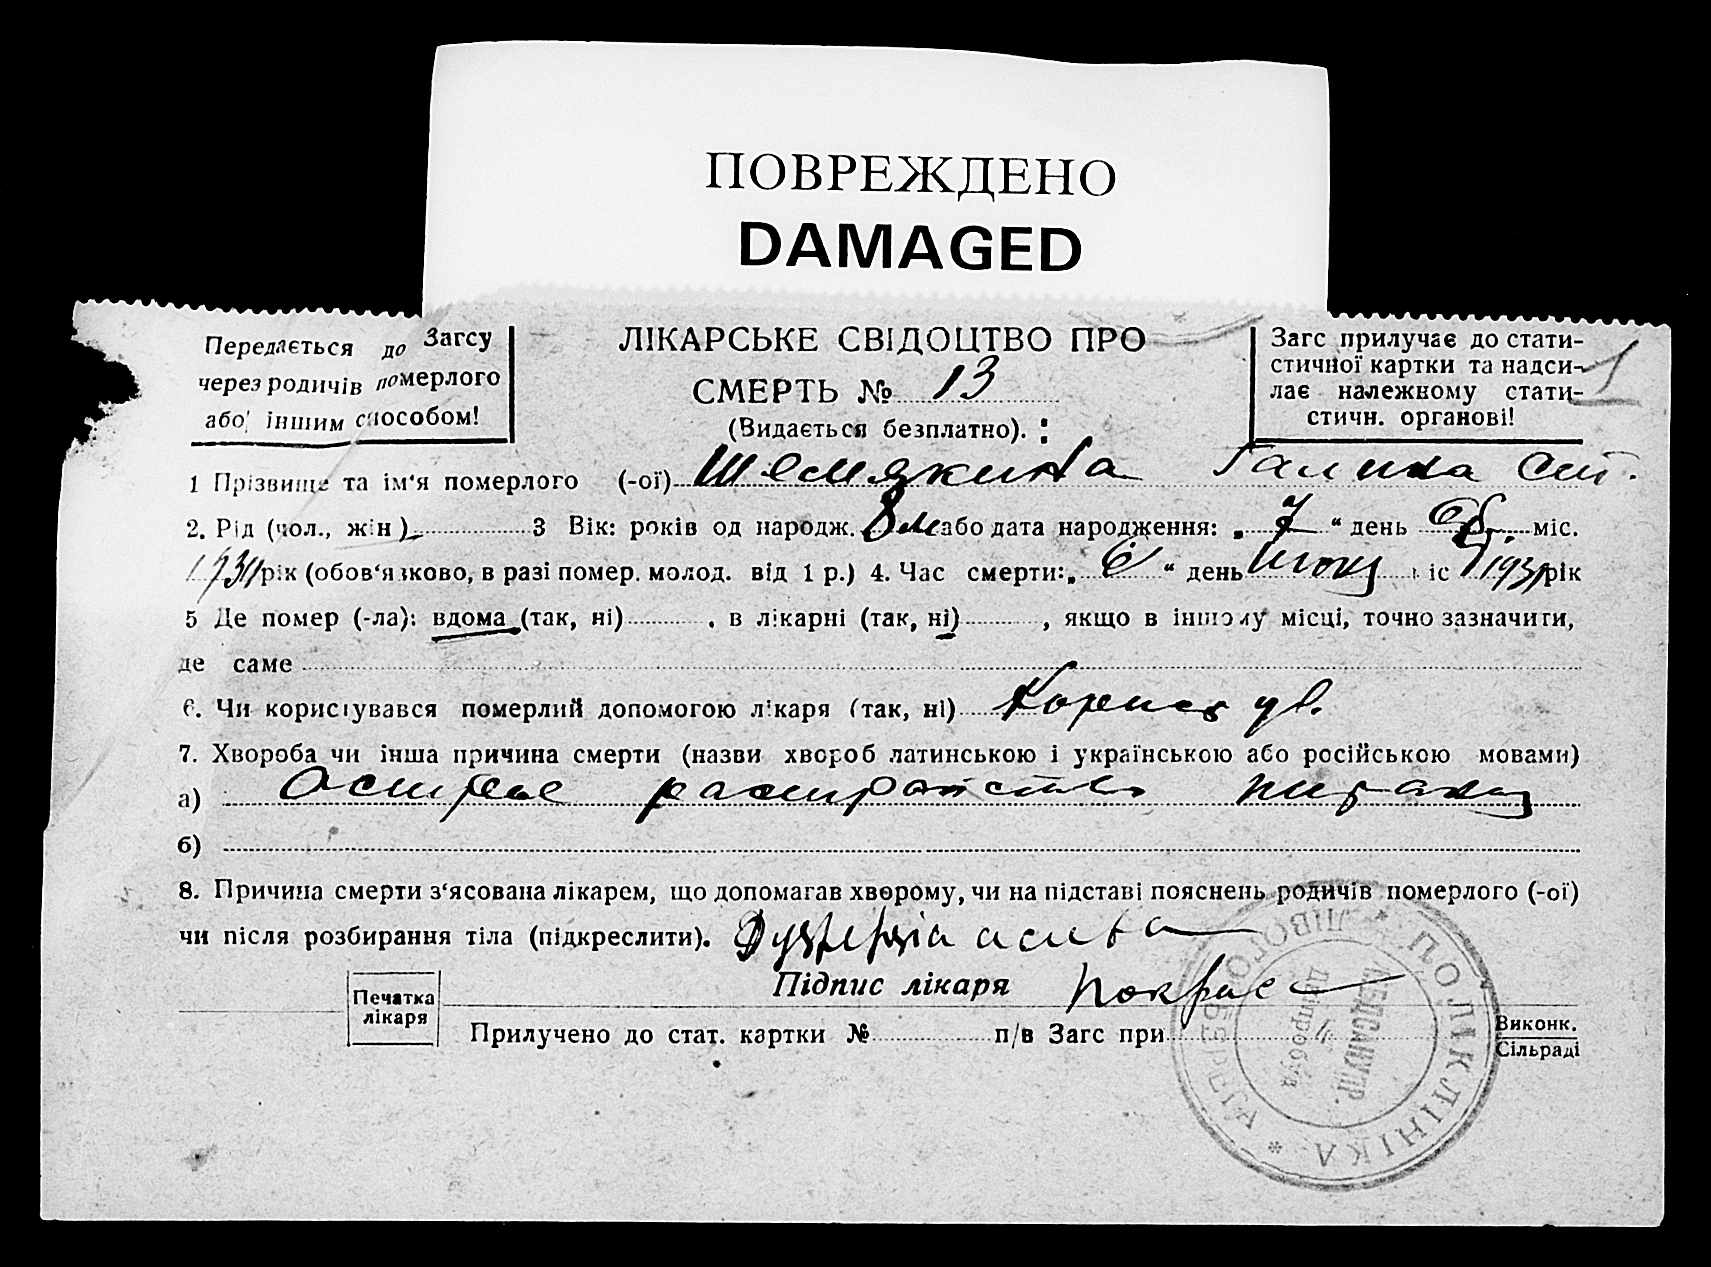 ПОВРЕЖДЕНО
DAMAGED
Передається до Загсу
через родичів померлого
або іншим способом!
ЛІКАРСЬКЕ СВІДОЦТВО ПРО
СМЕРТЬ № 13
(Видається безплатно).
Загс прилучає до стати-
стичної картки та надси-
лає належному стати-
стичн. органові!
1
1 Прізвище та ім'я померлого (-ої) Шемякина Галина
2. Рід (чол., жін.) 3 Вік: років од народж. 8 м або дата народження: „ 7 “ день міс.
1931 рік (обов'язково, в разі помер. молод. від 1 р.) 4. Час смерти: „ 6 “ день міс 1931 рік
5 Де помер (-ла): вдома (так, ні) , в лікарні (так, ні) , якщо в іншому місці, точно зазначити,
де саме
6. Чи користувався померлий допомогою лікаря (так, ні)
7. Хвороба чи інша причина смерти (назви хвороб латинською і українською або російською мовами)
а) острое расстройство
б)
8. Причина смерти з'ясована лікарем, що допомагав хворому, чи на підставі пояснень родичів померлого (-ої)
чи після розбирання тіла (підкреслити).
Печатка
лікаря
Підпис лікаря
Прилучено до стат. картки № п/в Загс при
Виконк.
Сільраді
ПОЛІКЛІНІКА